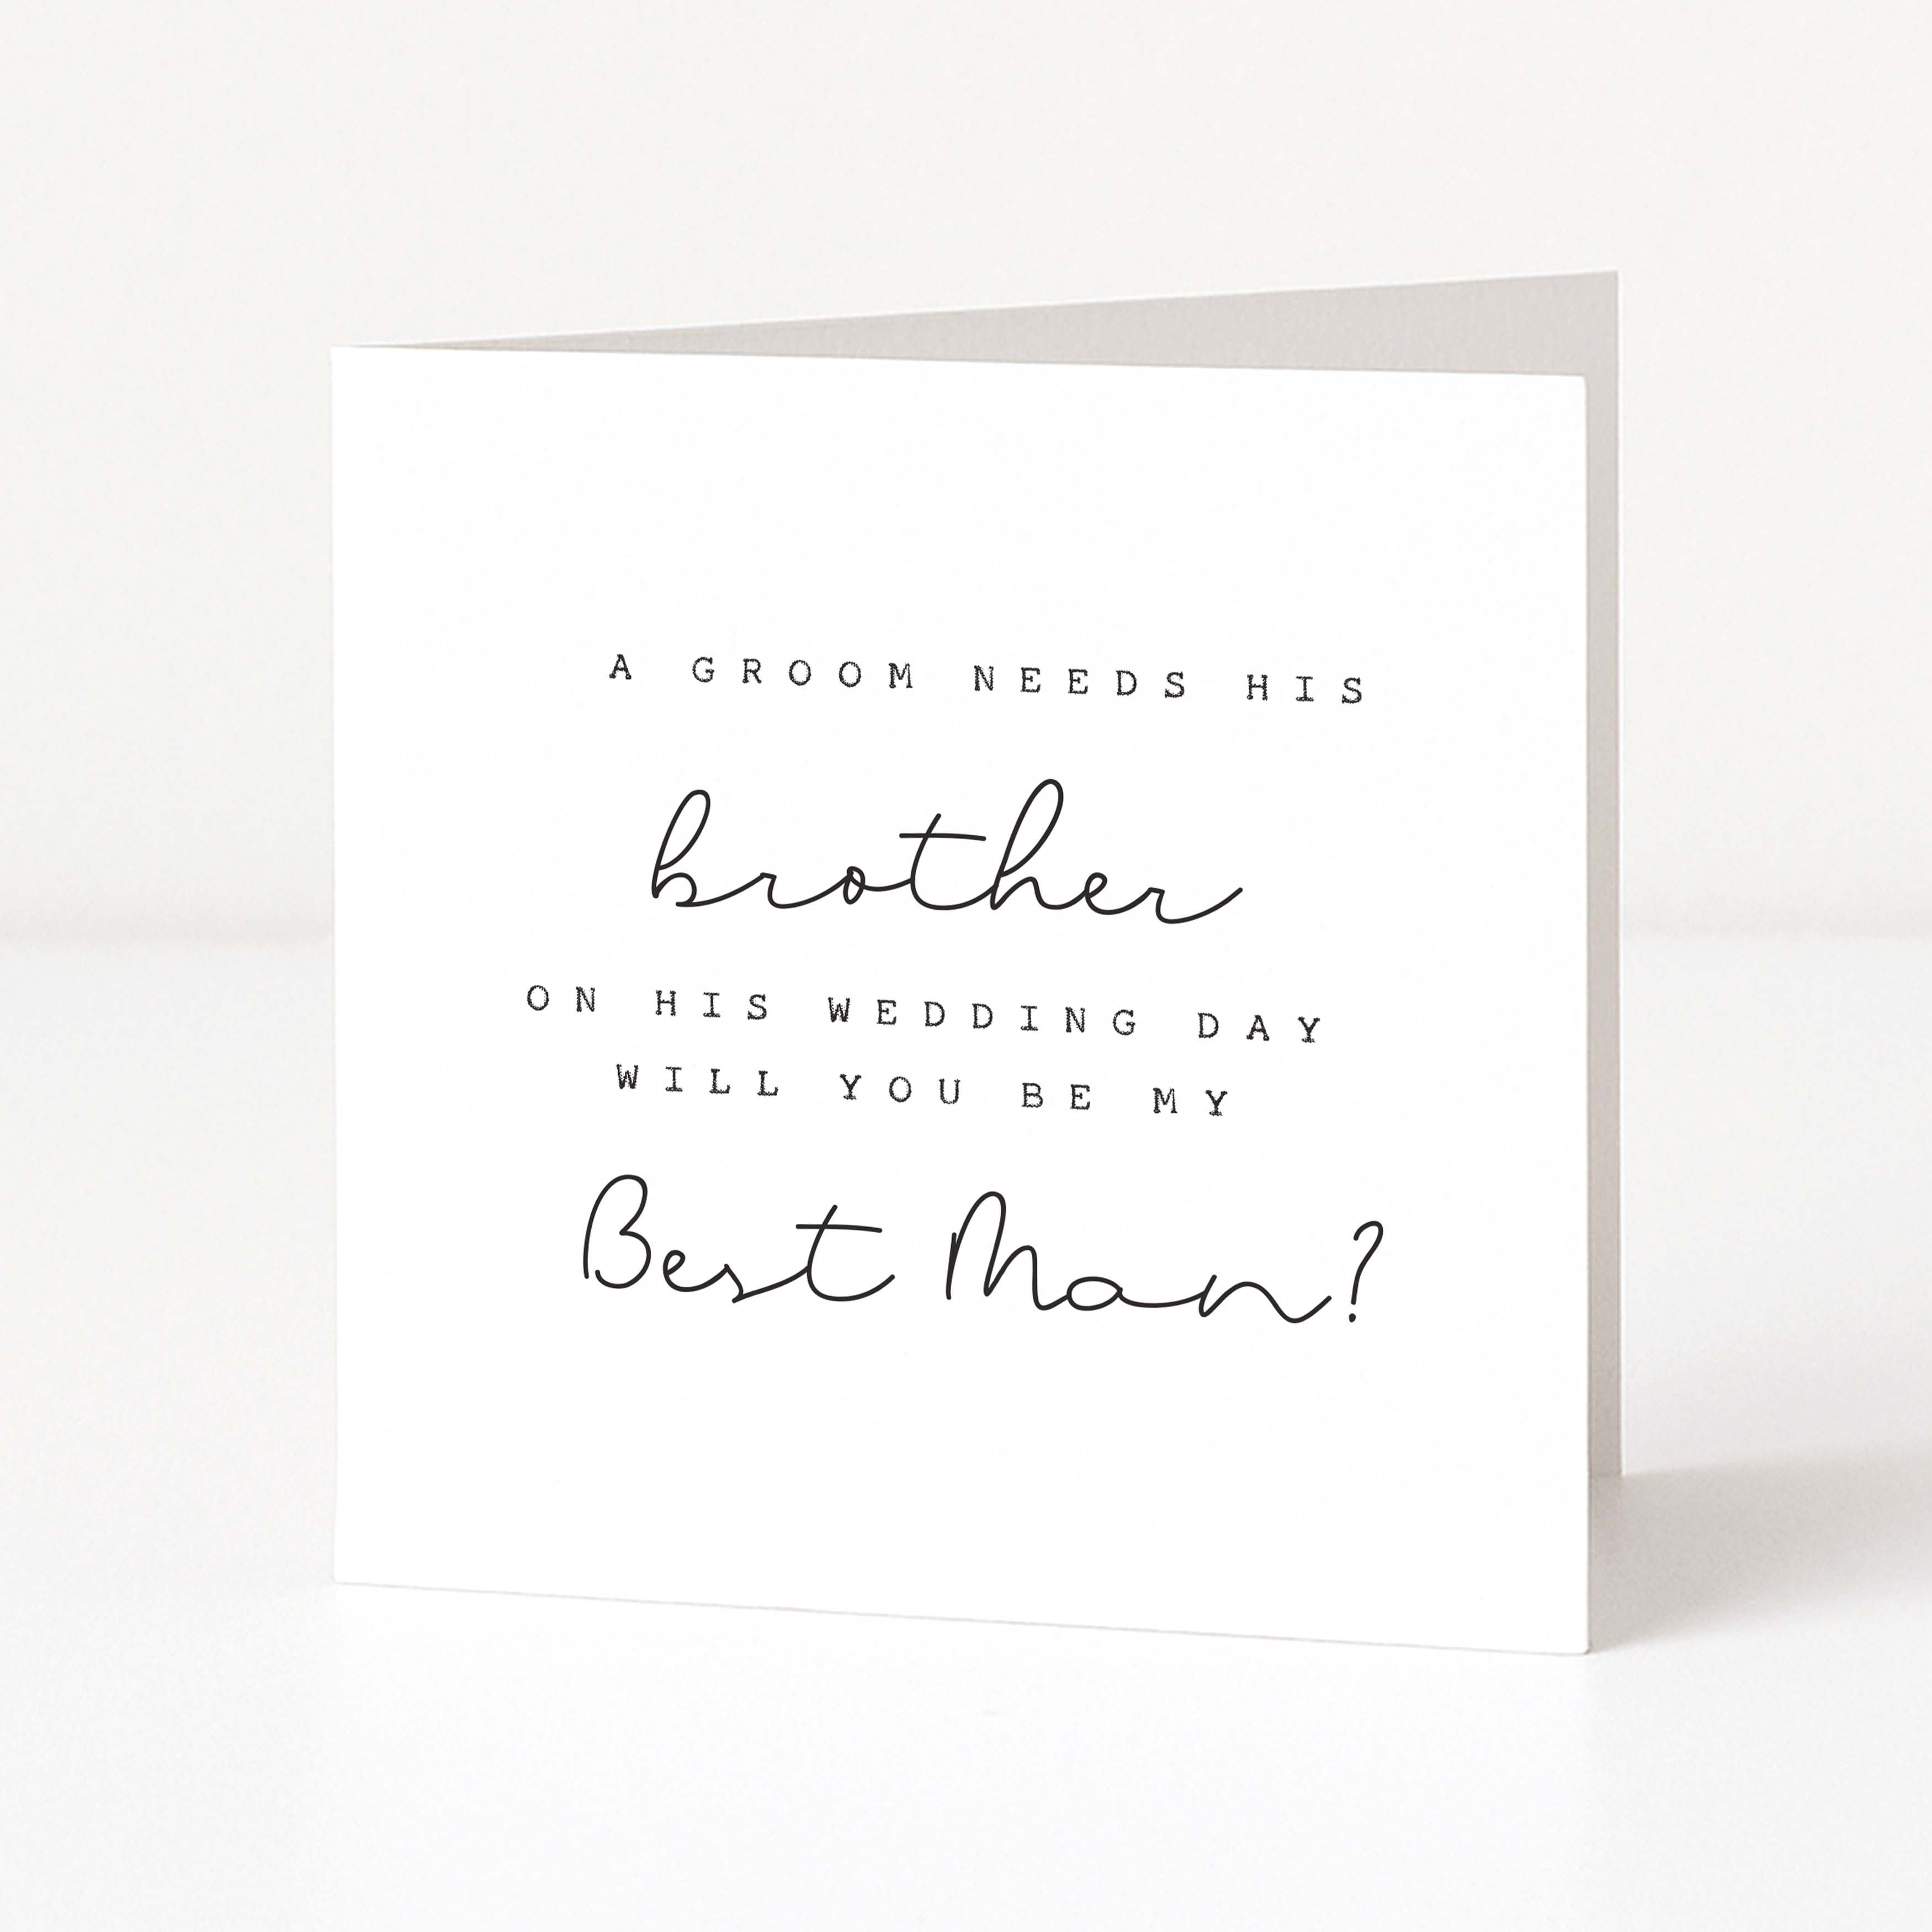 A GROOM NEEDS HIS
brother
ON HIS WEDDING DAY
WILL YOU BE MY
Best Man?